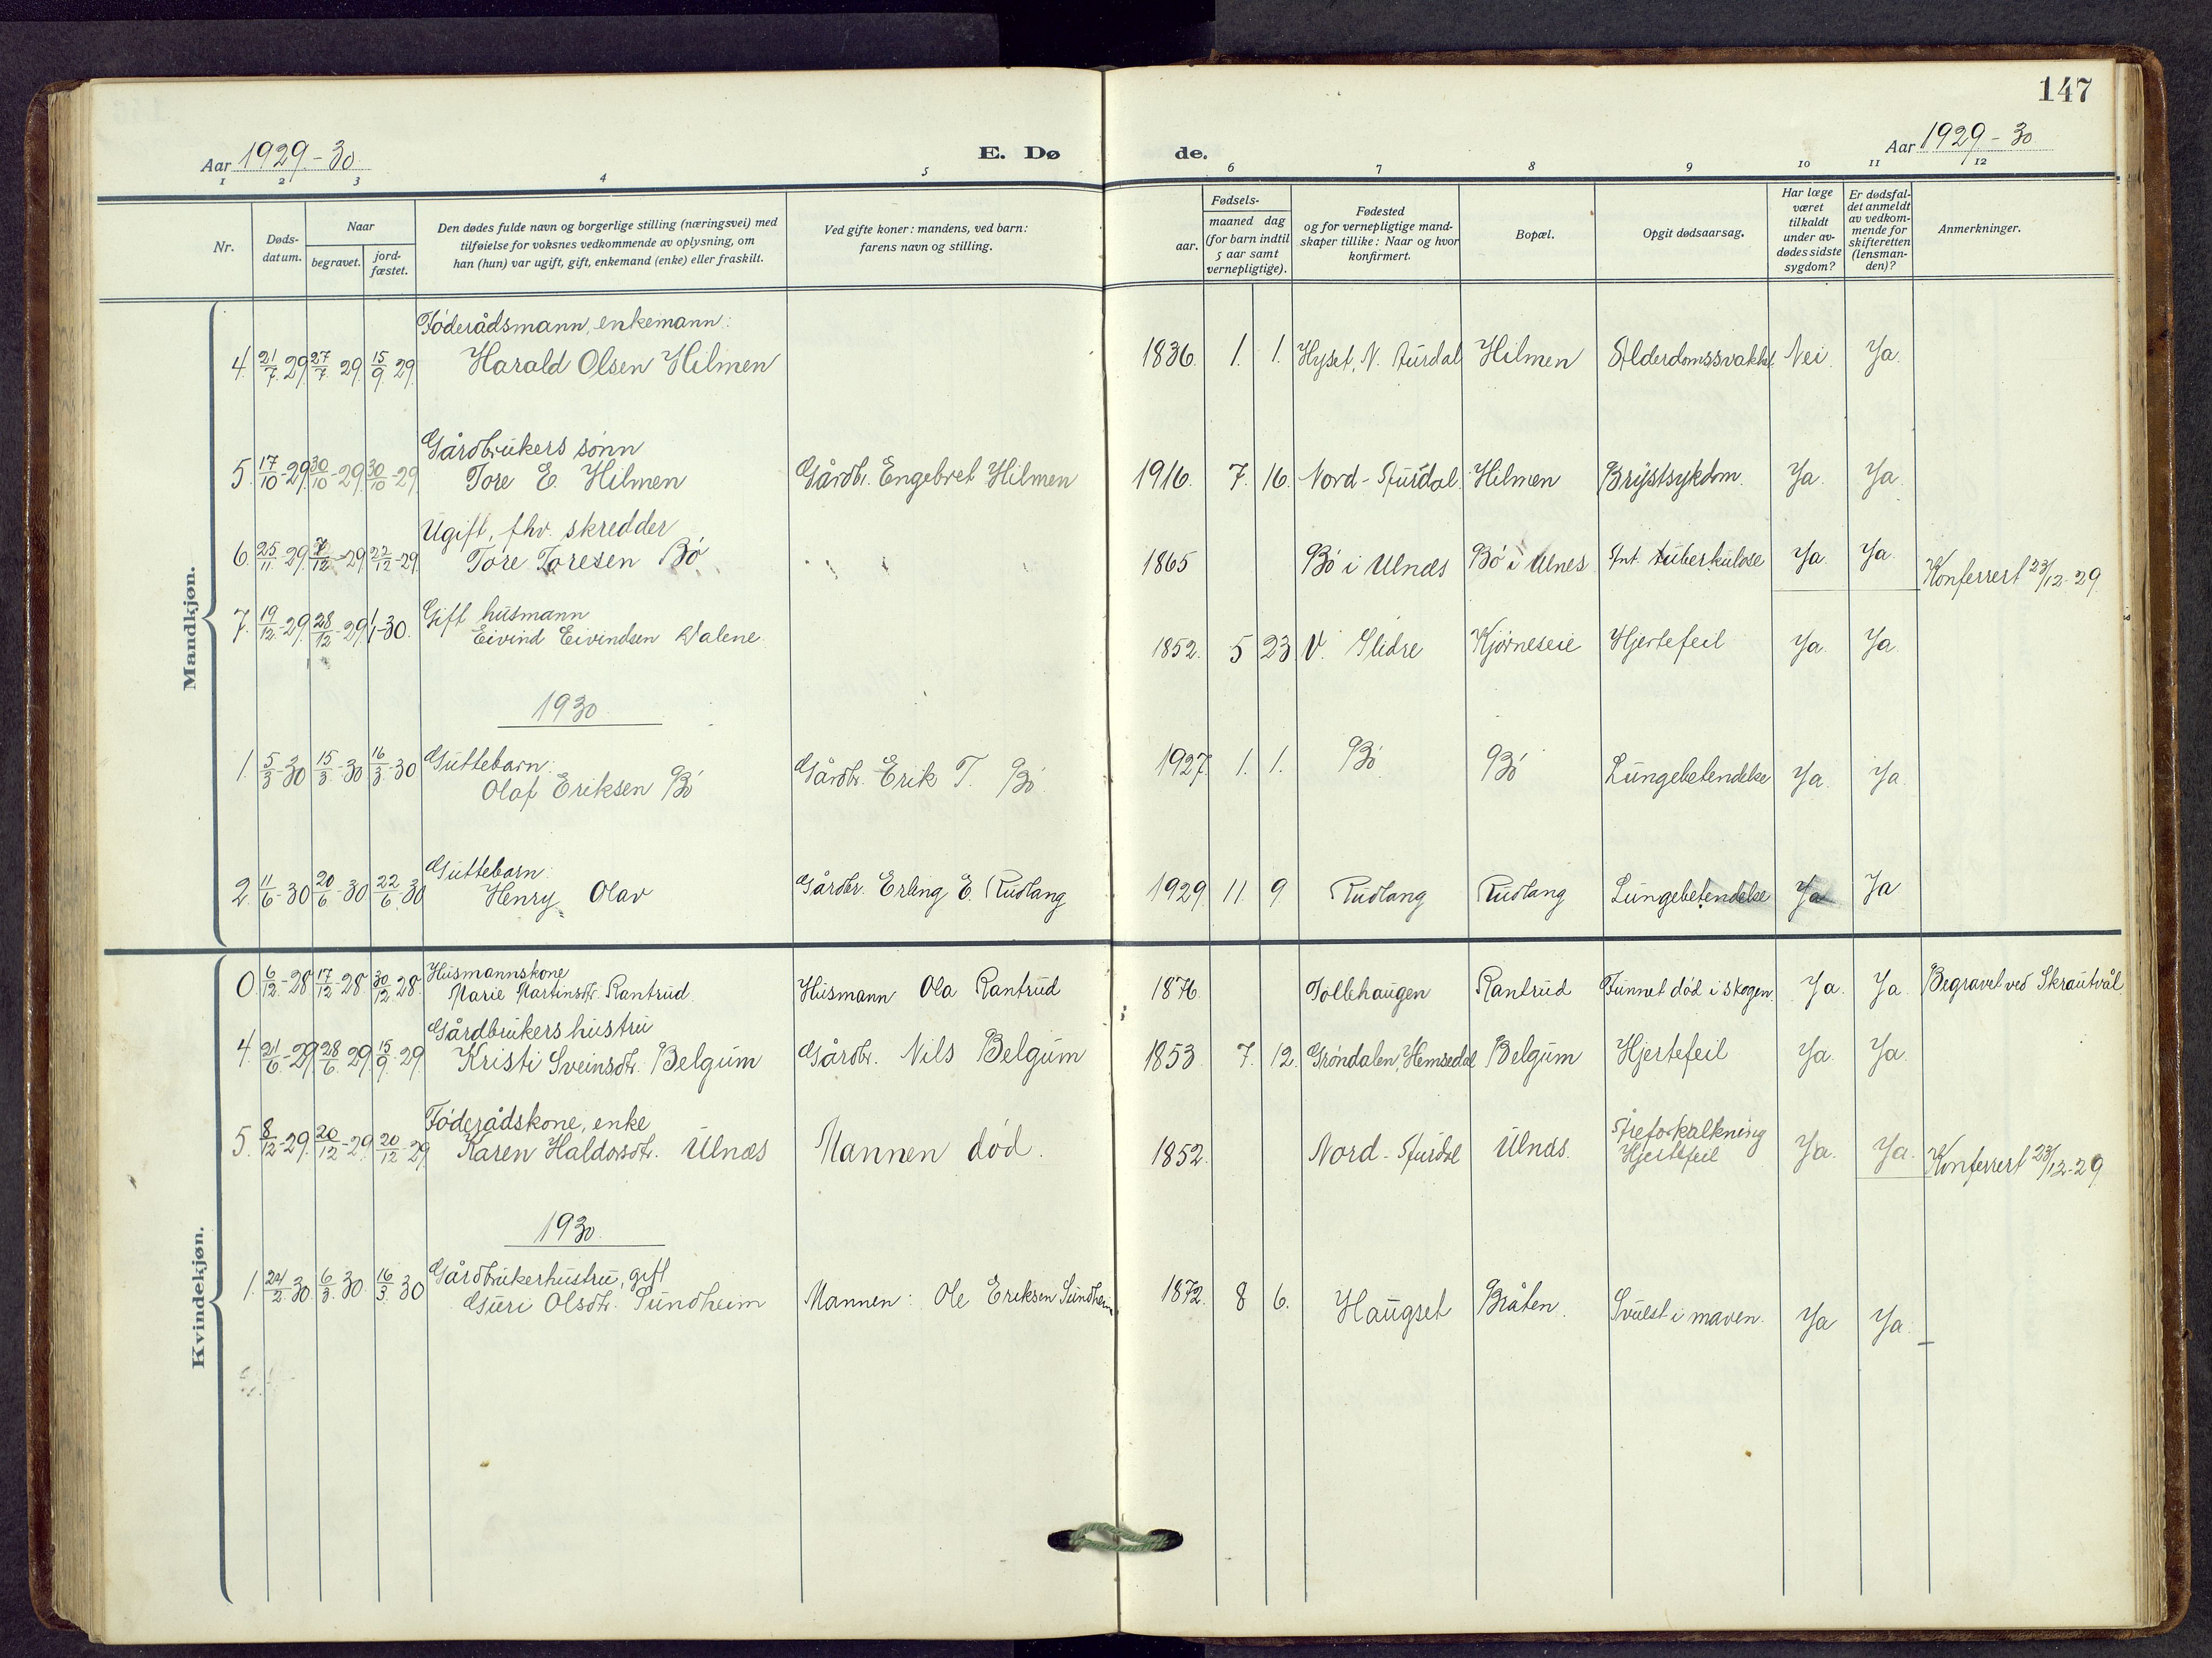 147
Aar 1929-30.
E. Dø
de.
Aar 1929-30
1 2 3 4 5 6 7 8 9 10 11 12
Nr.
Døds-
datum.
Naar
begravet.
jord-
fæstet.
Den dødes fulde navn og borgerlige stilling (næringsvei) med
tilføielse for voksnes vedkommende av oplysning, om
han (hun) var ugift, gift, enkemand (enke) eller fraskilt.
Ved gifte koner: mandens, ved barn:
farens navn og stilling.
Fødsels-
aar.
maaned dag
(for barn indtil
5 aar samt
vernepligtige).
Fødested
og for vernepligtige mand-
skaper tillike: Naar og hvor
konfirmert.
Bopæl.
Opgit dødsaarsag.
Har læge
været
tilkaldt
under av-
dødes sidste
sygdom?
Er dødsfal-
det anmeldt
av vedkom-
mende for
skifteretten
(lensman-
den)?
Anmerkninger.
Mandkjøn.
Føderådsmann, enkemann:
4. 21/7 29 27/7 29 15/9 29 Harald Olsen Hilmen 1836. 1. 1. Hyset, N. Aurdal Hilmen Alderdomssvakhet Nei. Ja.
Gårdbrukers sønn
5. 17/10-29 30/10-29 30/10-29 Tore E. Hilmen Gårdbr. Engebret Hilmen 1916. 7. 16. Nord-Aurdal. Hilmen Brystsykdom. Ja. Ja.
Ugift, fhv. skredder
6. 25/11-29 7/12-29 22/12-29 Tore Toresen Bø 1865 Bø i Ulnæs Bø i Ulnes Ant. tuberkulose Ja. Ja. Konferert 23/12-29.
Gift husmann
7. 19/12-29 28/12-29 1/1-30. Eivind Eivindsen Valene. 1852. 5 23 V. Slidre Kjørneseie Hjertefeil Ja. Ja.
1930
Guttebarn:
1. 5/3-30 15/3-30 16/3-30 Olaf Eriksen Bø Gårdbr. Erik T. Bø. 1927. 1. 1. Bø Bø Lungebetendelse Ja. Ja.
Guttebarn:
2. 11/6-30 20/6-30 22/6-30 Henry Olav Gårdbr. Erling E. Rudlang 1929 11 9 Rudlang Rudlang Lungebetendelse Ja Ja
Kvindekjøn.
Husmannskone
0. 6/12-28 17/12-28 30/12 28. Marie Martinsdtr. Rantrud. Husmann Ola Rantrud 1876. Tollehaugen Rantrud Funnet død i skogen. Ja. Ja. Begravet ved Skrautvål.
Gårdbrukers hustru
4. 21/6-29 28/6 29 15/9-29. Kristi Sveinsdtr. Belgum Gårdbr. Nils Belgum 1853 7. 12. Grøndalen, Hemsedal Belgum Hjertefeil Ja. Ja.
Føderådskone, enke
5. 8/12-29. 20/12-29 20/12-29 Karen Haldorsdtr. Ulnæs Mannen død. 1852. Nord-Aurdal Ulnæs. Åreforkalkning
Hjertefeil Ja. Ja. Konferert 23/12-29
1930.
Gårdbrukerhustru, gift
1. 24/2 30 6/3 30. 16/3 30 Guri Olsdtr. Sundheim Mannen: Ole Eriksen Sundheim 1872. 8 6. Haugset Bråten. Svulst i maven. Ja Ja.